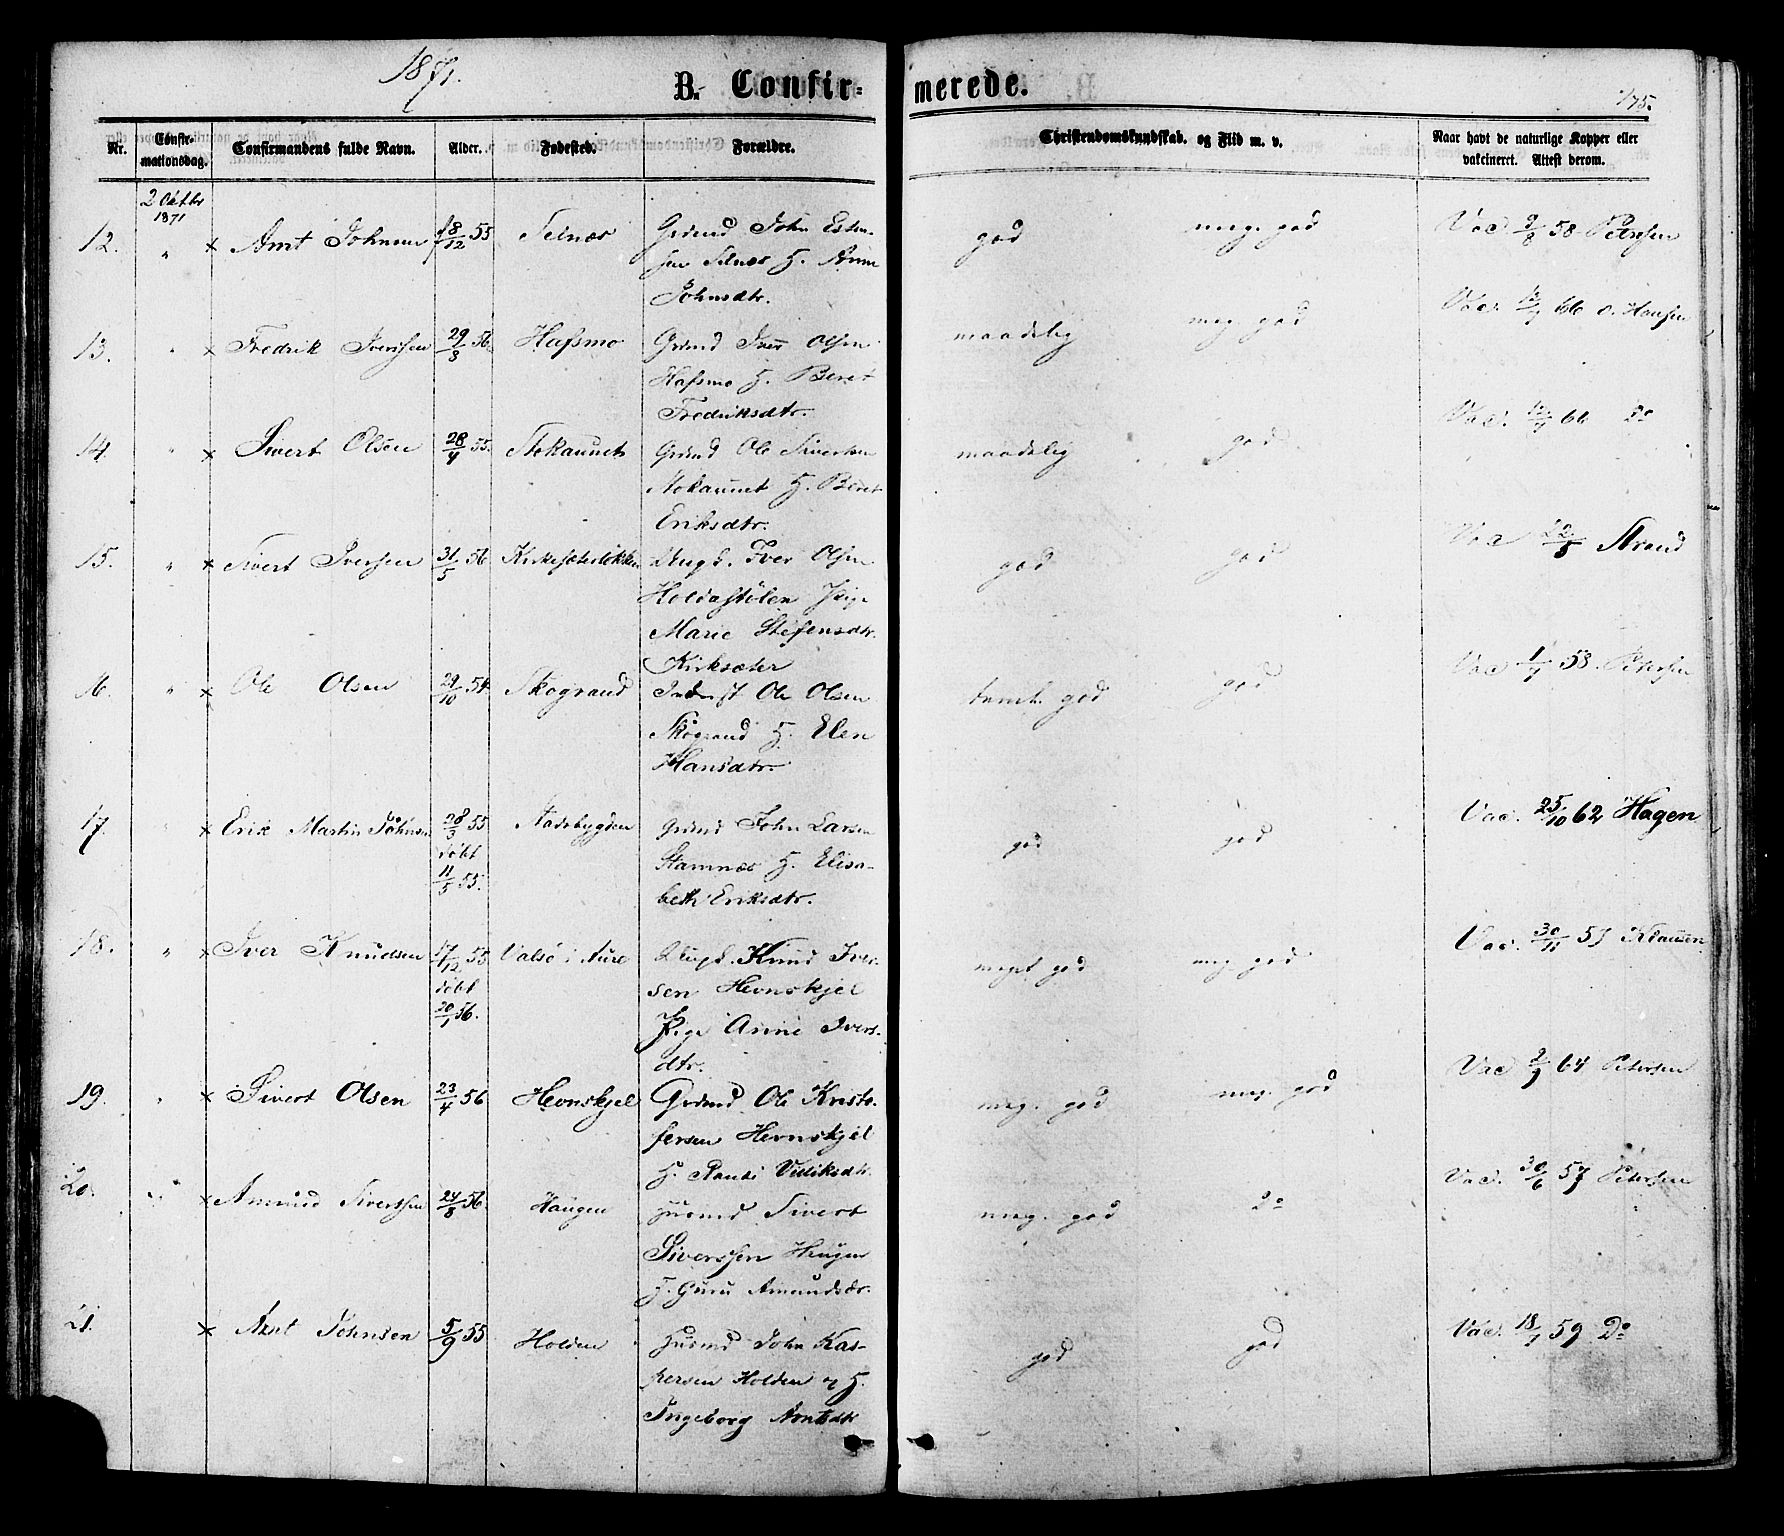 1871.
B. Confir-
merede.
175.
Nr.
Confir-
mationsdag.
Confirmandens fulde Navn.
Alder.
Fødested.
Forældre.
Christendomskundskab. og Flid m. v.
Naar havt de naturlige Kopper eller
vakcineret. Attest derom.
2 Oktbr
1871
12. " × Arnt Johnsen 18/12 55 Selnæs Grdmd John Esten-
sen Selnæs H. Anne
Johnsdtr.
god meg. god Vac 9/8 58 Petersen
13. " × Fredrik Iverssen 29/3 56. Hafsmo Grdmd Iver Olsen
Hafsmo H. Beret
Fredriksdtr.
maadelig meg god Vac. 66 O. Hansen
14. " × Sivert Olsen 28/4 55. Stokaunet Grdmd Ole Sivertsen
Stokaunet H. Beret
Eriksdtr.
maadelig god Vac. 66 Do
15. " × Sivert Iversen 31/5 56 Kirkesæterløkken Ungk. Iver Olsen
Holdastølen Pige
Marie Stefensdtr.
Kirksæter
god god Vac 22/5 Strand
16. " × Ole Olsen 29/10 54 Skogrand Inderst Ole Olsen
Skogrand H. Elen
Hansdtr.
temt. god god Vac 1/7 58. Petersen
17. " × Erik Martin Johnsen 28/3 55 Stadsbygden Grdmd John Larsen
døbt
11/5 55.
Stamnæs H. Elisa-
beth Eriksdtr.
god god Vac. 25/10 62 Hagen
18. " × Iver Knudsen 17/12 55 Valsø i Aure Ungk. Knud Iver-
døbt
20/1 56.
sen Hevnskjel
Pige Anne Ivers-
dtr.
meget god meg. god Vac. 30/11 57 Klausen
19. " × Sivert Olsen 23/4 56 Hevnskjel Grdmd Ole Kristo-
fersen Hevnskjel
H. Randi Vediksdtr.
meg. god meg. god Vac 2/9 64 Petersen
20. " × Amund Sivertsen 24/8 56. Haugen Husmd Sivert
Siverssen Haugen
H. Guru Amundsdr.
meg. god Do Vac. 30/6 57 Petersen
21. × Arnt Johnsen 5/9 55 Holden Husmd John Kas-
persen Holden og H.
Ingeborg Arntsdtr
god god Vac. 18/7 59 Do